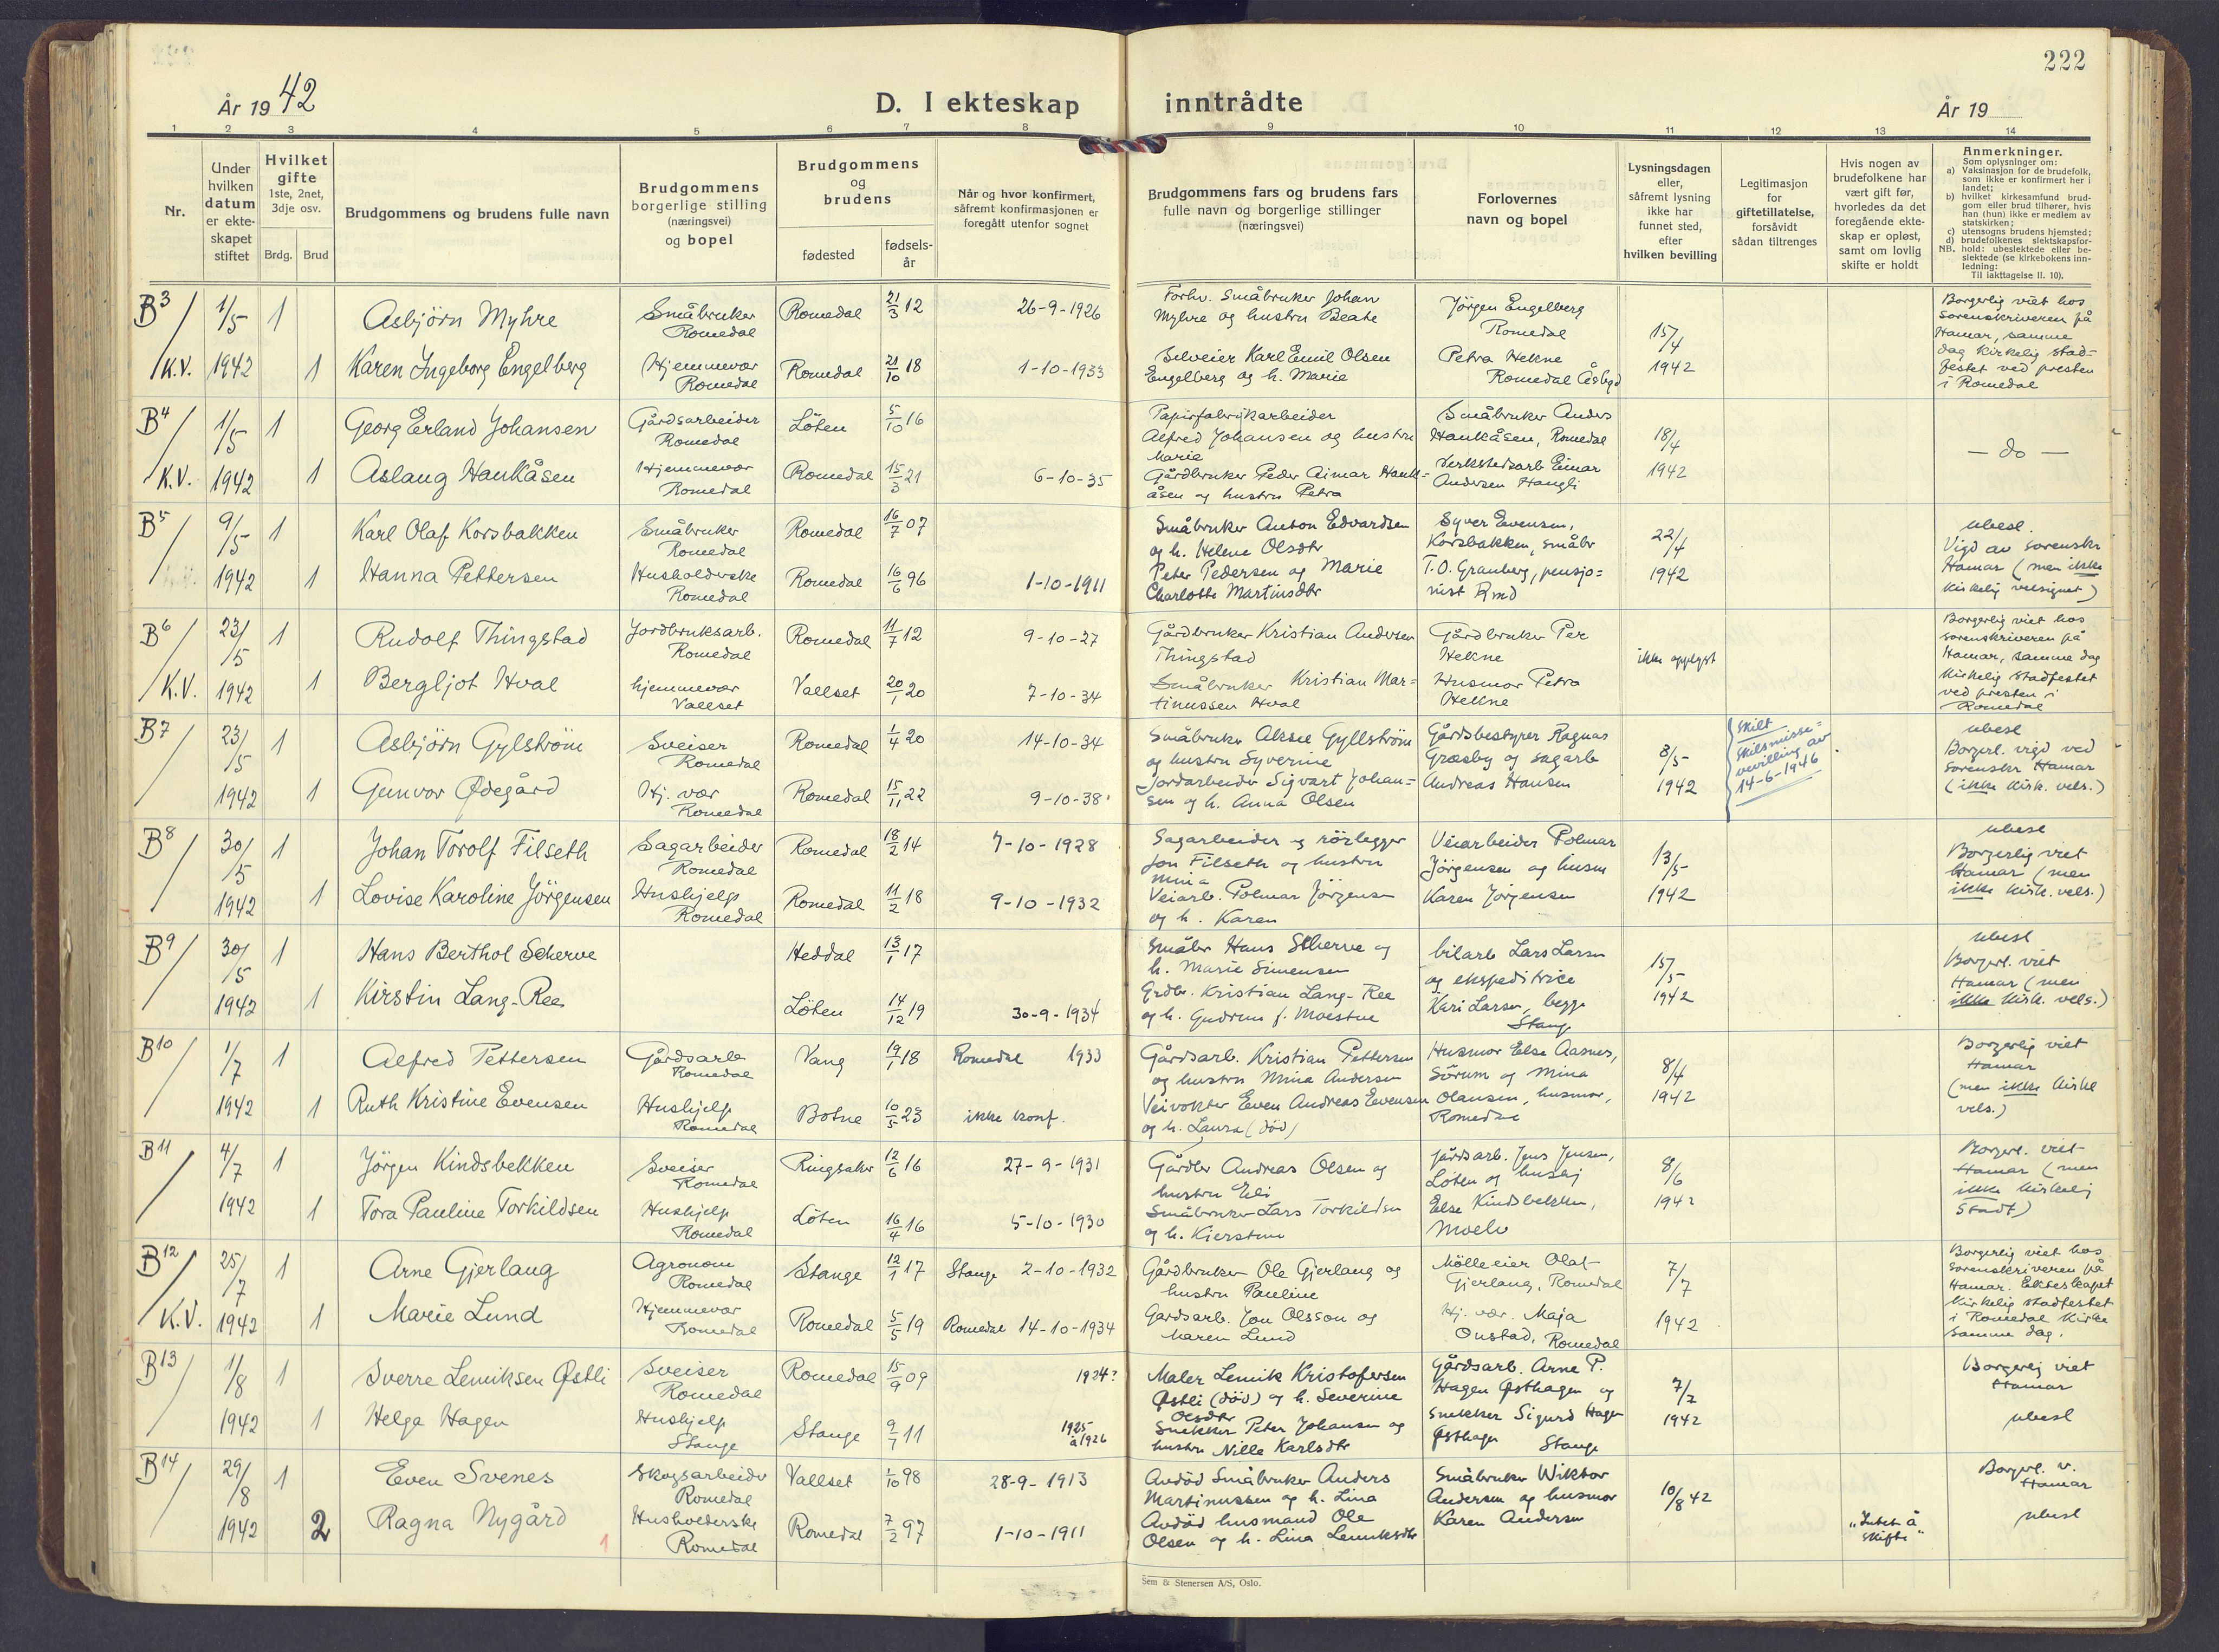 222
År 1942
D. I ekteskap inntrådte
År 19
1 2 3 4 5 6 7 8 9 10 11 12 13 14
Nr.
Under hvilken datum er ekteskapet stiftet
Hvilket gifte
1ste, 2net, 3dje osv.
Brdg. Brud
Brudgommens og brudens fulle navn
Brudgommens borgerlige stilling (næringsvei) og bopel
Brudgommens og brudens
fødested
fødselsår
Når og hvor konfirmert, såfremt konfirmasjonen er foregått utenfor sognet
Brudgommens fars og brudens fars fulle navn og borgerlige stillinger (næringsvei)
Forlovernes navn og bopel
Lysningsdagen eller, såfremt lysning ikke har funnet sted, efter hvilken bevilling
Legitimasjon for giftetillatelse, forsåvidt sådan tiltrenges
Hvis nogen av brudefolkene har vært gift før, hvorledes da det foregående ekteskap er opløst, samt om lovlig skifte er holdt
Anmerkninger.
Som oplysninger om:
a) Vaksinasjon for de brudefolk, som ikke er konfirmert her i landet;
b) hvilket kirkesamfund brudgom eller brud tilhører, hvis han (hun) ikke er medlem av statskirken;
c) utensogns brudens hjemsted;
d) brudefolkenes slektskapsforhold: ubeslektede eller beslektede (se kirkebokens innledning:
NB.
Til iakttagelse II. 10).
B3 1/5 1 Asbjörn Myhre Småbruker Romedal Romedal 21/3 12 26-9-1926 Forhv. Småbruker Johan Myhre og hustru Beate Jörgen Engelberg Romedal 15/4
K.V. 1942 1 Karen Ingeborg Engelberg Hjemmevær Romedal Romedal 21/10 18 1-10-1933 Selveier Karl Emil Olsen Engelberg og h. Marie Petra Hekne Romedal Åsbygd 1942
Borgerlig viet hos sorenskriveren på Hamar, samme dag kirkelig stadfestet ved presten i Romedal
B4 1/5 1 Georg Erland Johansen Gårdsarbeider Romedal Löten 5/10 16 Papirfabrikarbeider Alfred Johansen og hustru Marie Småbruker Anders Haukåsen, Romedal 18/4
K.V. 1942 1 Aslaug Haukåsen Hjemmevær Romedal Romedal 15/3 21 6-10-35 Gårdbruker Peder Aimar Haukåsen og hustru Petra Verkstedsarb Einar Andersen Haugli 1942
— do —
B5 9/5 1 Karl Olaf Korsbakken Småbruker Romedal Romedal 16/7 07 Småbruker Anton Edvardsen og h. Helene Olsdtr Syver Evensen, Korsbakken, småbr 22/4
1942 1 Hanna Pettersen Husholderske Romedal Romedal 16/6 96 1-10-1911 Peter Pedersen og Marie Charlotte Martinsdtr T.O. Granberg, pensjonist Rmd 1942
ubesl. Vigd av sorenskr Hamar (men ikke kirkelig velsignet)
B6 23/5 1 Rudolf Thingstad Jordbruksarb. Romedal Romedal 11/7 12 9-10-27 Gårdbruker Kristian Andersen Thingstad Gårdbruker Per Hekne ikke opplyst
K.V. 1942 1 Bergljot Hval hjemmevær Vallset Vallset 20/1 20 7-10-34 Småbruker Kristian Martinussen Hval Husmor Petra Hekne
Borgerlig viet hos sorenskriveren på Hamar, samme dag kirkelig stadfestet ved presten i Romedal
B7 23/5 1 Asbjörn Gylström Sveiser Romedal Romedal 1/4 20 14-10-34 Småbruker Aksel Gyllström og hustru Syverine Gårdsbestyrer Ragnar Græsby og sagarb 8/5
1942 1 Gunvor Ødegård Hj. vær Romedal Romedal 15/11 22 9-10-38 Jordarbeider Sigvart Johansen og h. Anna Olsen Andreas Hansen 1942
Skilt skilsmissebevilling av 14-6-1946
ubesl Borgerl. vigd ved sorenskr Hamar (ikke kirk. vels.)
B8 30/5 1 Johan Torolf Filseth Sagarbeider Romedal Romedal 18/2 14 7-10-1928 Sagarbeider og rörlegger Jon Filseth og hustru Mina Veiarbeider Polmar Jörgensen og husm 13/5
1942 1 Lovise Karoline Jörgensen Hushjelp Romedal Romedal 11/2 18 9-10-1932 Veiarb. Polmar Jörgensen og h. Karen Karen Jörgensen 1942
ubesl Borgerlig viet Hamar (men ikke kirk. vels.)
B9 30/5 1 Hans Berthol Scherve Heddal 13/1 17 Småbr Hans Scherve og h. Marie Simensen bilarb Lars Larsen og ekspeditrice 15/5
1942 1 Kirstin Lang-Ree Löten 14/12 19 30-9-1934 Grdbr. Kristian Lang-Ree og h. Gudrun f. Moestue Kari Larsen, begge Stange 1942
ubesl Borgerl. viet Hamar (men ikke kirk. vels.)
B10 1/7 1 Alfred Pettersen Gårdsarb Romedal Vang 19/1 18 Romedal 1933 Gårdsarb. Kristian Pettersen og hustru Mina Andersen Husmor Else Aasnes, Sörum og Mina 8/4
1942 1 Ruth Kristine Evensen Hushjelp Romedal Botne 10/5 23 ikke konf. Veivokter Even Andreas Evensen og h. Laura (död) Olausen, husmor, Romedal 1942
Borgerlig viet Hamar (men ikke kirke vels.)
B11 4/7 1 Jörgen Kindsbekken Sveiser Romedal Ringsaker 12/6 16 27-9-1931 Gårdbr Andreas Olsen og hustru Eli gårdsarb. Jens Jensen, Löten og hushj 8/6
1942 1 Tora Pauline Torkildsen Hushjelp Romedal Löten 16/4 16 5-10-1930 Småbruker Lars Torkildsen og h. Kjerstine Else Kindsbekken, Moelv 1942
Borgerl. viet Hamar (men ikke kirkelig Stadf)
B12 25/7 1 Arne Gjerlaug Agronom Romedal Stange 12/1 17 Stange 2-10-1932 Gårdbruker Ole Gjerlaug og hustru Pauline Mölleeier Olaf Gjerlaug, Romedal 7/7
K.V. 1942 1 Marie Lund Hjemmevær Romedal Romedal 5/5 19 Romedal 14-10-1934 Gardsarb. Jon Olsson og Maren Lund Hj. vær. Maja Onstad, Romedal 1942
Borgerlig viet hos sorenskriveren på Hamar. Ekteskapet kirkelig stadfestet i Romedal kirke samme dag.
B13 1/8 1 Sverre Lemiksen Østli Sveiser Romedal Romedal 15/9 09 1924? Maler Lemik Kristofersen Østli (död) og h. Severine Olsdtr Gårdsarb. Arne P. Hagen Østhagen og 7/7
1942 1 Helga Hagen Hushjelp Stange Stange 9/7 11 1925 à 1926 Snekker Peter Johansen og hustru Nille Karlsdtr Snekker Sigurd Hagen Østhagen Stange 1942
Borgerlig viet Hamar ubesl
B14 29/8 1 Even Svenes Skogsarbeider Romedal Vallset 1/10 98 28-9-1913 Avdöd Småbruker Anders Martinussen og h. Lina Småbruker Wiktor Andersen og husmor 10/8 42
1942 2 Ragna Nygård 1 Husholderske Romedal Romedal 7/2 97 1-10-1911 Avdöd husmand Ole Olsen og h. Lina Lemiksdtr Karen Andersen „Intet å skifte"
Borgerl. v. Hamar ubesl
Sem & Stenersen A/S, Oslo.